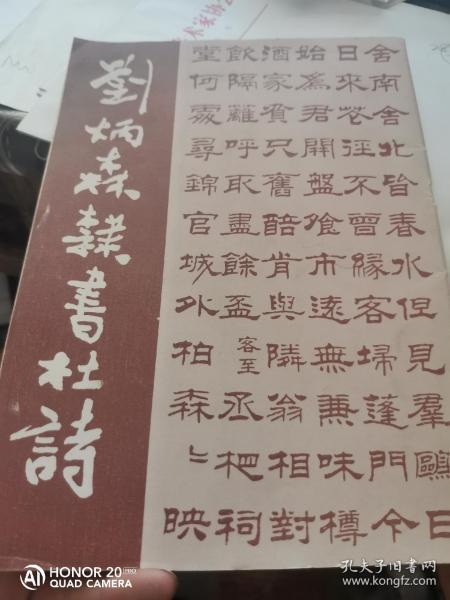 劉炳森隸書杜詩
舍南舍北皆春水但見羣鷗日
日來花徑不曾緣客掃蓬門今
始爲君開盤飧市遠無兼味樽
酒家貧只舊醅肯與隣翁相對
飲隔籬呼取盡餘盃客至丞相祠
堂何處尋錦官城外柏森〻映
HONOR 20
AI QUAD CAMERA
孔夫子旧书网
www.kongfz.com